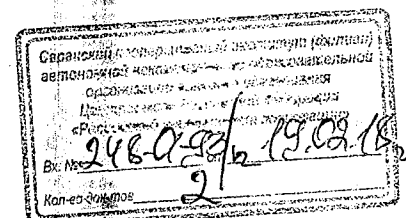 Саранский кооперативный институт (филиал)
автономной некоммерческой образовательной
организации высшего образования
Центросоюза Российской Федерации
«Российский университет кооперации»
Вх. № 19.02.18
Кол-во листов 2